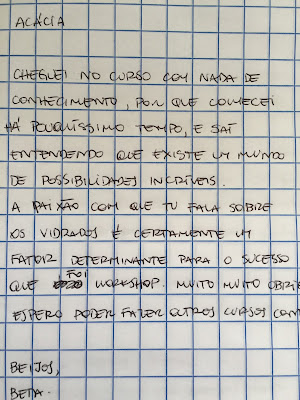 ACÁCIA
CHEGUEI NO CURSO COM NADA DE
CONHECIMENTO, POR QUE COMECEI
HÁ POUQUÍSSIMO TEMPO, E SAÍ
ENTENDENDO QUE EXISTE UM MUNDO
DE POSSIBILIDADES INCRÍVEIS.
A PAIXÃO COM QUE TU FALA SOBRE
OS VIDRADOS É CERTAMENTE UM
FATOR DETERMINANTE PARA O SUCESSO
QUE FOI WORKSHOP. MUITO MUITO OBRI
ESPERO PODER FAZER OUTROS CURSOS CON
BEIJOS,
BETA.